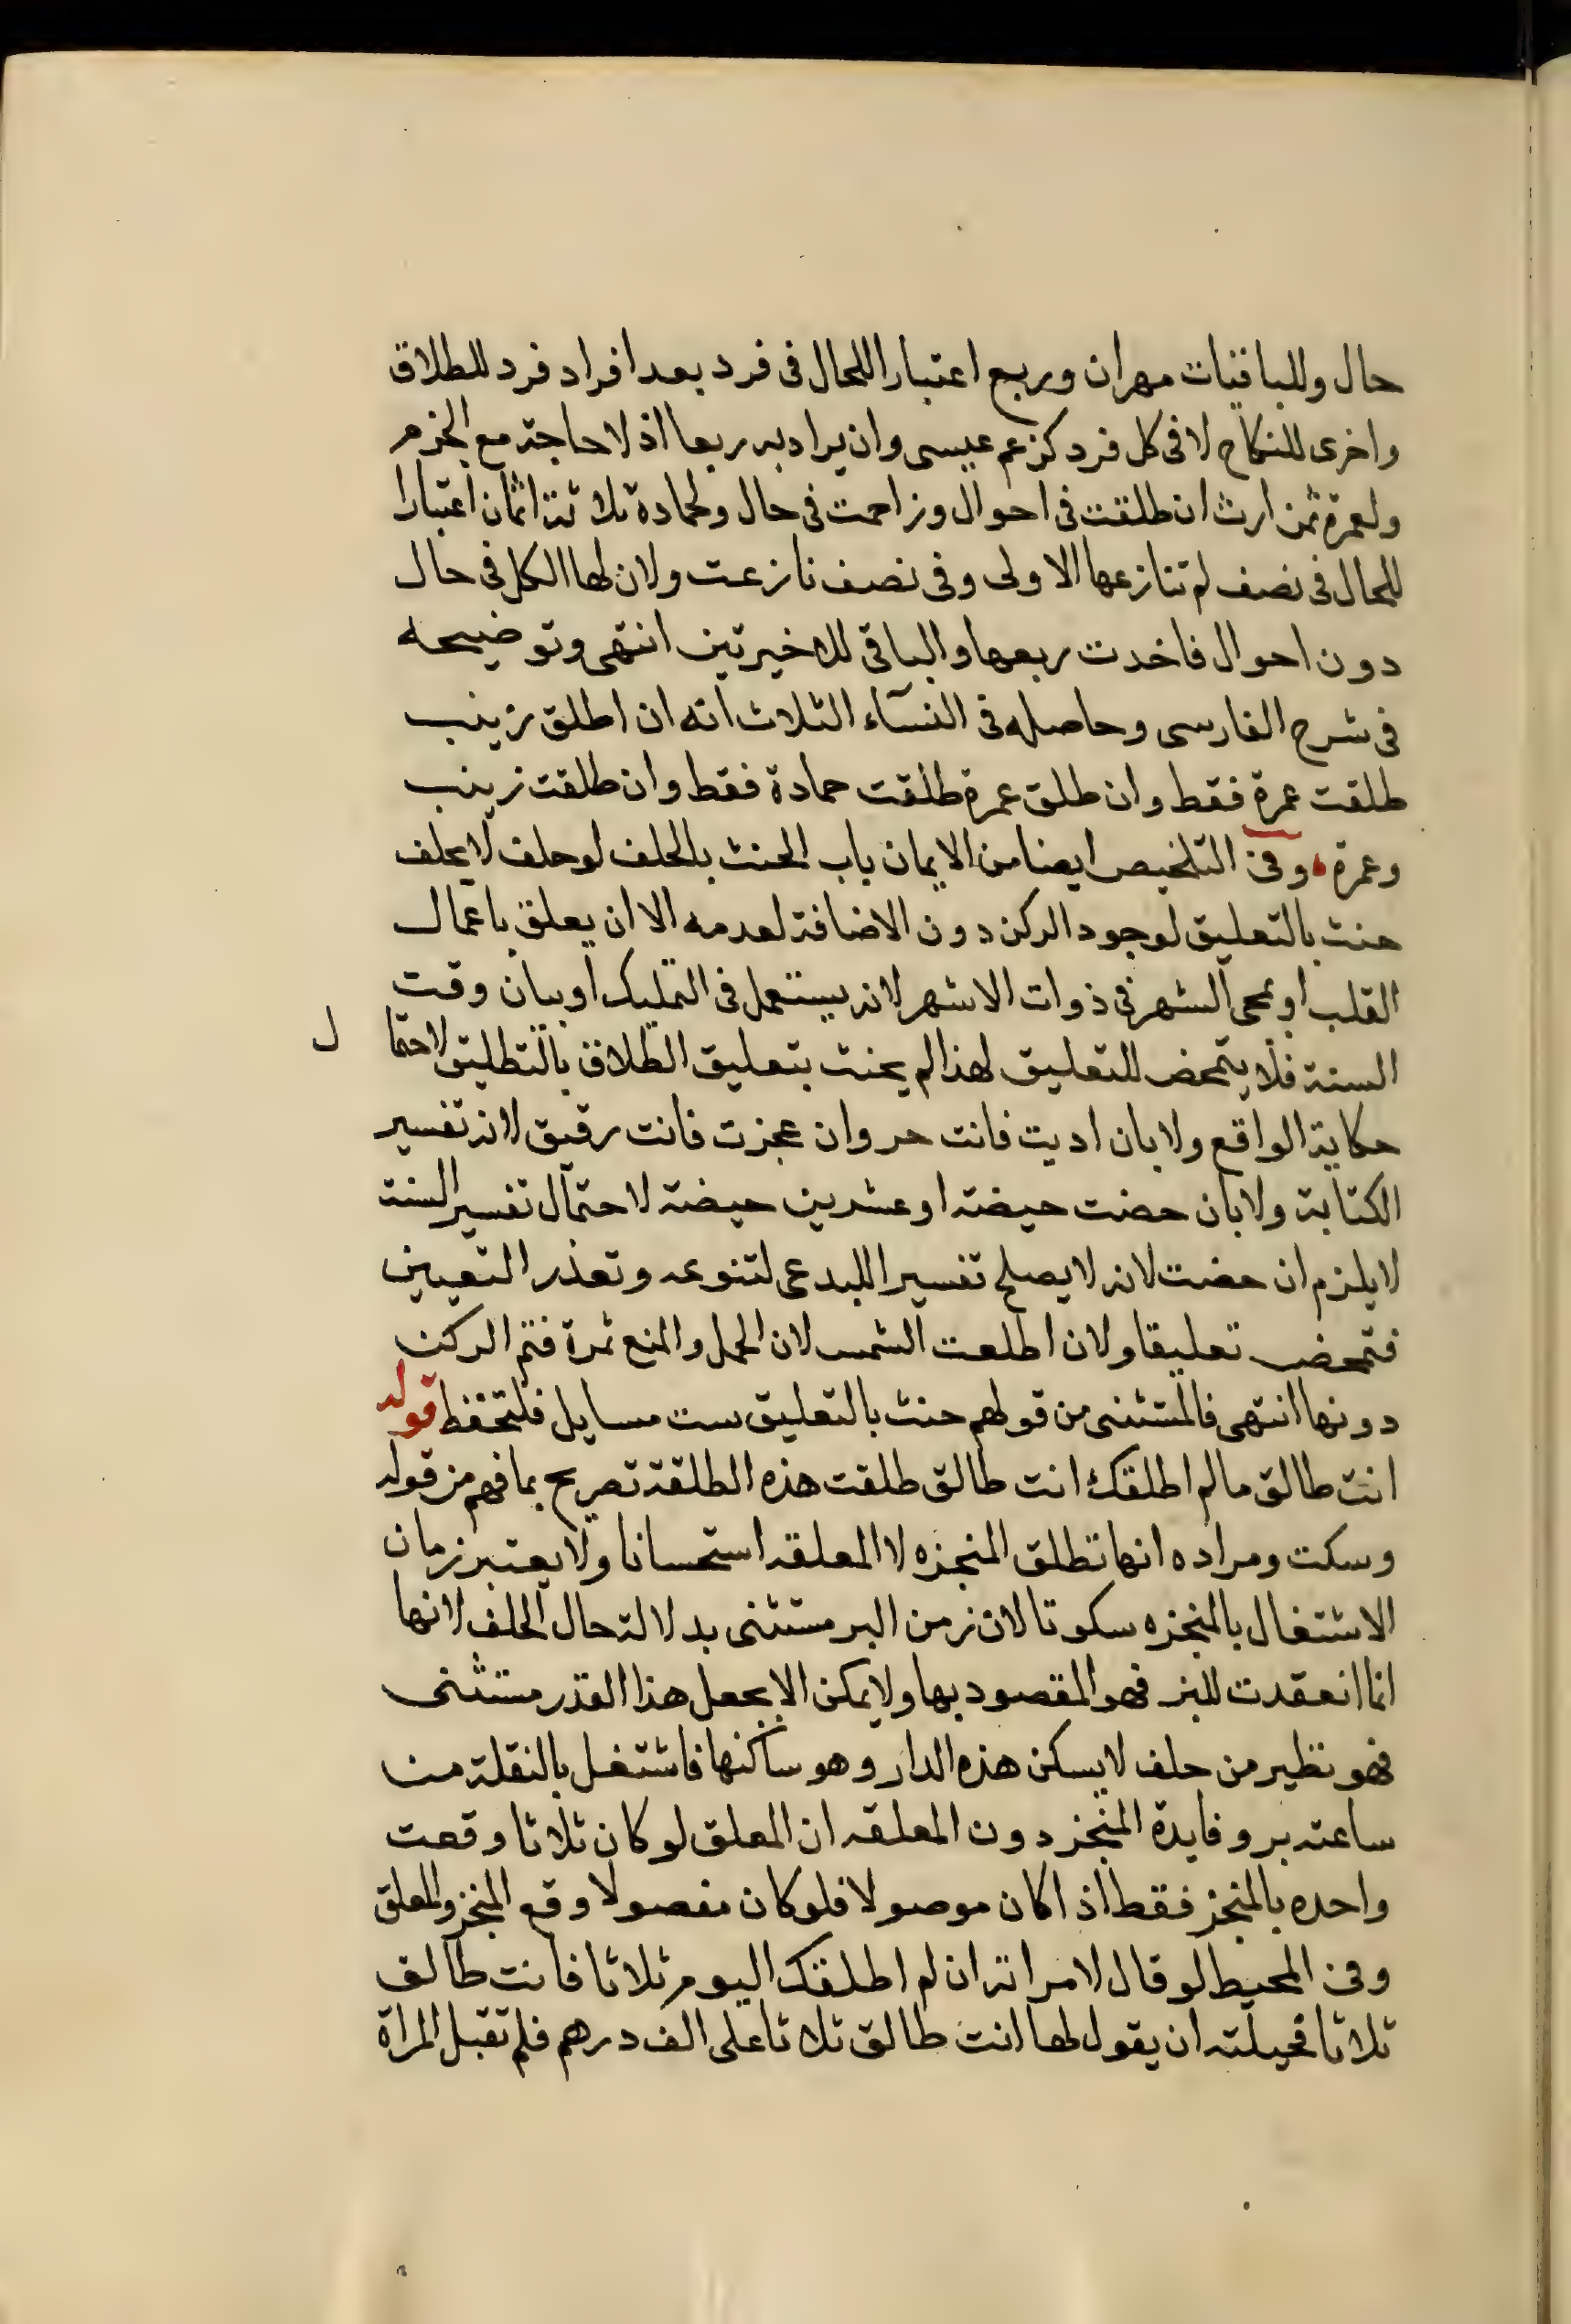 حال وللباقيات مهران وربع اعتبارا للحال فى فرد بعد افراد فرد للطلاق
واخرى للنكاح لا فى كل فرد كزعم عيسى وان يراد به ربعا اذ لا حاجة مع الجزم
ولعمرة ثمن ارث ان طلقت فى احوال وزاحمت فى حال ولحمادة ثلاثة اثمان اعتبارا
للحال فى نصف لم تنازعها الاولى وفى نصف نازعت ولان لها الكل فى حال
دون احوال فاخدت ربعها والباقى للاخيرتين انتهى وتوضيحه
فى شرح الفارسى وحاصله فى النسآء الثلاث انه ان اطلق زينب
طلقت عمرة فقط وان طلق عمرة طلقت حمادة فقط وان طلقت زينب
وعمرة وفى التلخيص ايضا من الايمان باب الحنث بالحلف لو حلف لا يحلف
حنث بالتعليق لوجود الركن دون الاضافة لعدمه الا ان يعلق باعمال
القلب او بمجى الشهر فى ذوات الاشهر لانه يستعمل فى التمليك او بيان وقت
السنة فلا يتمحض للتعليق لهذا لم يحنث بتعليق الطلاق بالتطليق لاحتما ل
حكاية الواقع ولا بان اديت فانت حر وان عجزت فانت رقيق لانه تفسير
الكتابة ولا بان حضت حيضة او عشرين حيضة لاحتمال تفسير السنة
لا يلزم ان حضت لانه لا يصلح تفسيرا للبدعى لتنوعه وتعذر التعيين
فتمحض تعليقا ولان اطلعت الشمس لان الحمل والمنع ثمرة فتم الركن
دونها انتهى فالمستثنى من قولهم حنث بالتعليق ست مسايل فلتحفظ قوله
انت طالق ما لم اطلقك انت طالق طلقت هذه الطلقة تصريح بما فهم من قوله
وسكت ومراده انها تطلق المنجزه لا المعلقه استحسانا ولا يعتبر زمان
الاشتغال بالمنجزه سكوتا لان زمن البر مستثنى بدلالة حال الحلف لانها
انما انعقدت للبر فهو المقصود بها ولا يمكن الا بجعل هذا القدر مستثنى
فهو نظير من حلف لا يسكن هذه الدار وهو ساكنها فاشتغل بالنقلة من
ساعته بر وفايدة المنجز دون المعلقه ان المعلق لو كان ثلاثا وقعت
واحده بالمنجز فقط اذا كان موصولا فلو كان مفصولا وقع المنجز والمعلق
وفى المحيط لو قال لامراته ان لم اطلقك اليوم ثلاثا فانت طالق
ثلاثا فحيلته ان يقول لها انت طالق ثلاثا على الف درهم فلم تقبل المراة